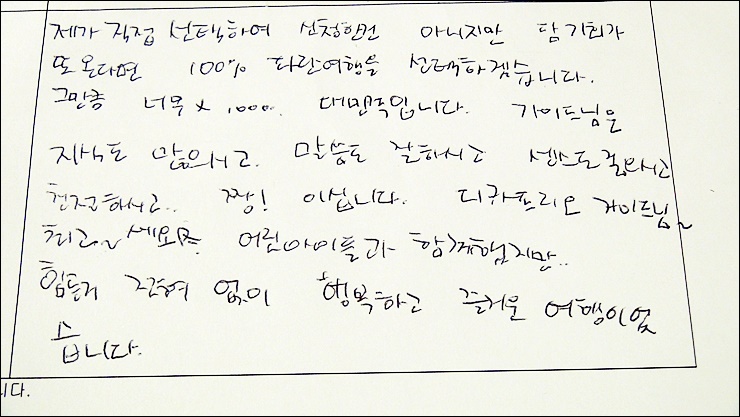 제가 직접 선택하여 신청한건 아니지만 담 기회가
또 온다면 100% 파란여행을 선택하겠습니다.
그만큼 너무 x 1000.. 대만족입니다. 가이드님은
지식도 많으시고. 말씀도 잘하시고 센스도 있으시고
친절하시고.. 짱! 이십니다. 디카프리오 가이드님~
최고~ 어린아이들과 함께했지만..
힘든거 전혀 없이 행복하고 즐거운 여행이었
습니다.
니다.